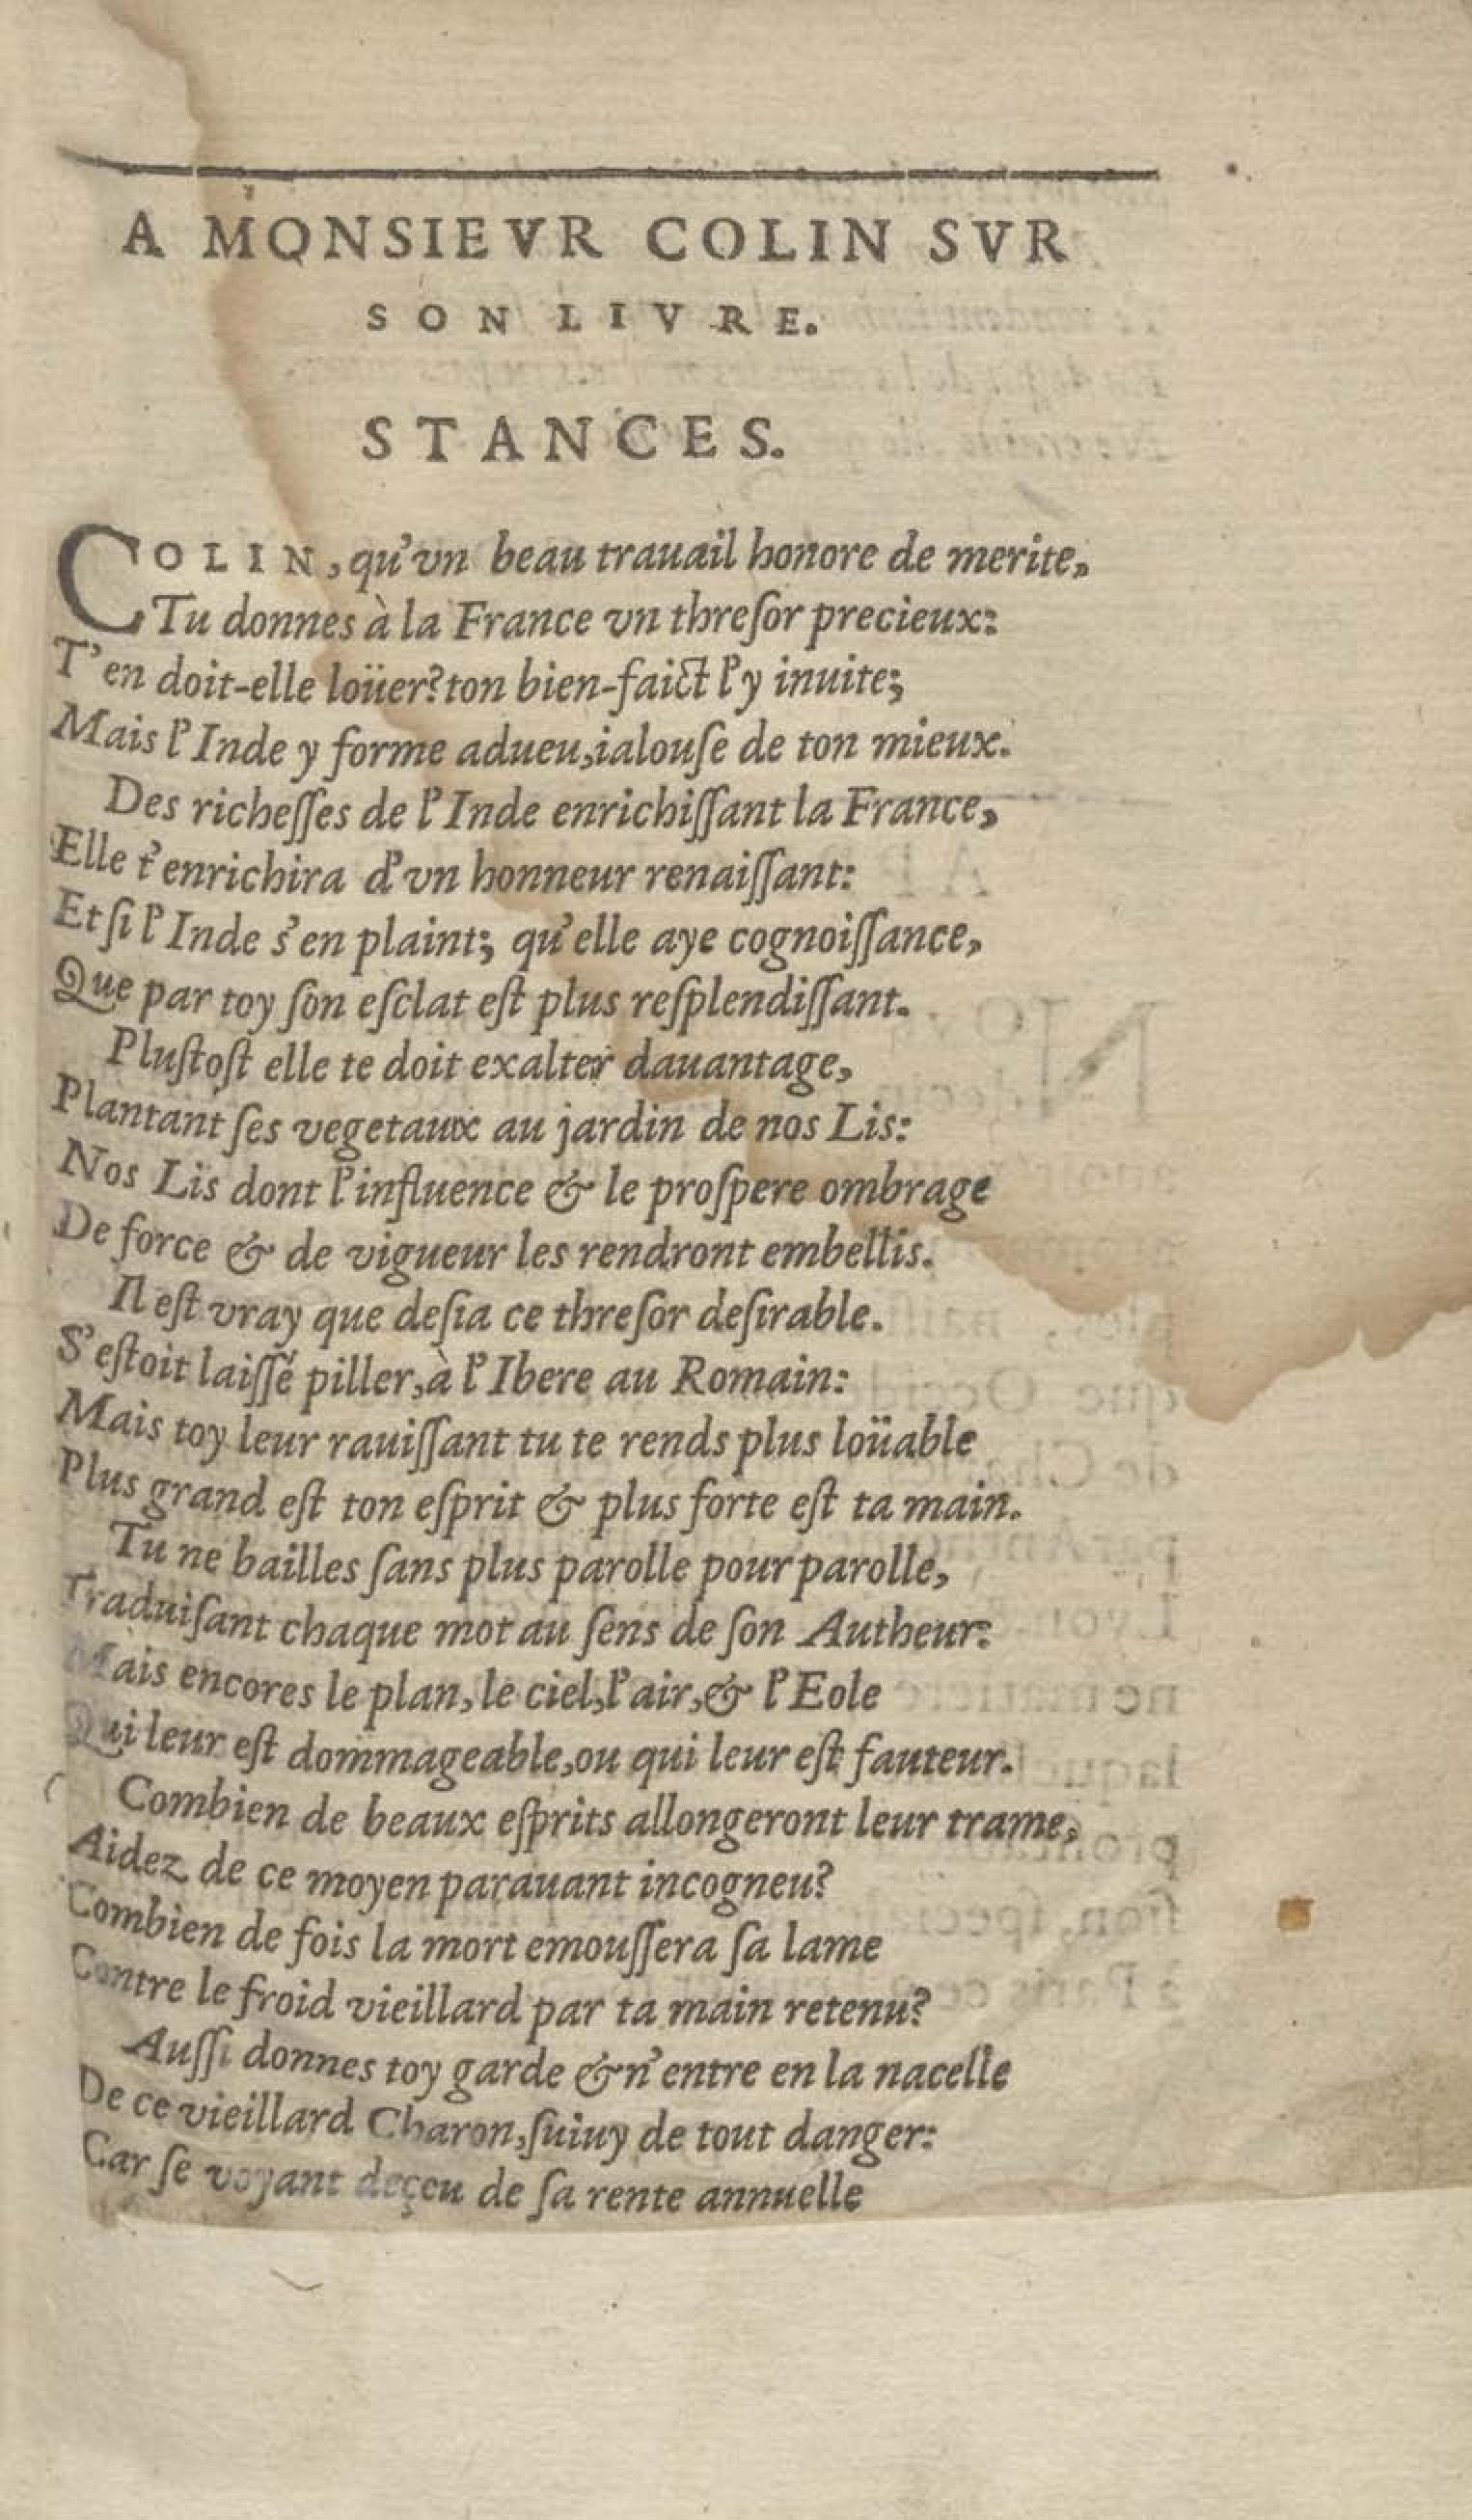 A MONSIEVR COLIN SVR
SON LIVRE.
STANCES.
COLIN, qu'vn beau trauail honore de merite,
Tu donnes à la France vn threſor precieux:
T'en doit-elle loüer? ton bien-faict l'y inuite;
Mais l'Inde y forme adueu, ialouſe de ton mieux.
Des richeſſes de l'Inde enrichiſſant la France,
Elle t'enrichira d'vn honneur renaiſſant:
Et ſi l'Inde s'en plaint; qu'elle aye cognoiſſance,
Que par toy ſon eſclat eſt plus reſplendiſſant.
Pluſtoſt elle te doit exalter dauantage,
Plantant ſes vegetaux au jardin de nos Lis:
Nos Lis dont l'influence & le proſpere ombrage
De force & de vigueur les rendront embellis.
Il eſt vray que deſia ce threſor deſirable.
S'eſtoit laiſſé piller, à l'Ibere au Romain:
Mais toy leur rauiſſant tu te rends plus loüable
Plus grand eſt ton eſprit & plus forte eſt ta main.
Tu ne bailles ſans plus parolle pour parolle,
Traduiſant chaque mot au ſens de ſon Autheur:
Mais encores le plan, le ciel, l'air, & l'Eole
Qui leur eſt dommageable, ou qui leur eſt fauteur.
Combien de beaux eſprits allongeront leur trame,
Aidez de ce moyen parauant incogneu?
Combien de fois la mort emouſſera ſa lame
Contre le froid vieillard par ta main retenu?
Auſſi donnes toy garde & n'entre en la nacelle
De ce vieillard Charon, ſuiuy de tout danger:
Car ſe voyant deçeu de ſa rente annuelle